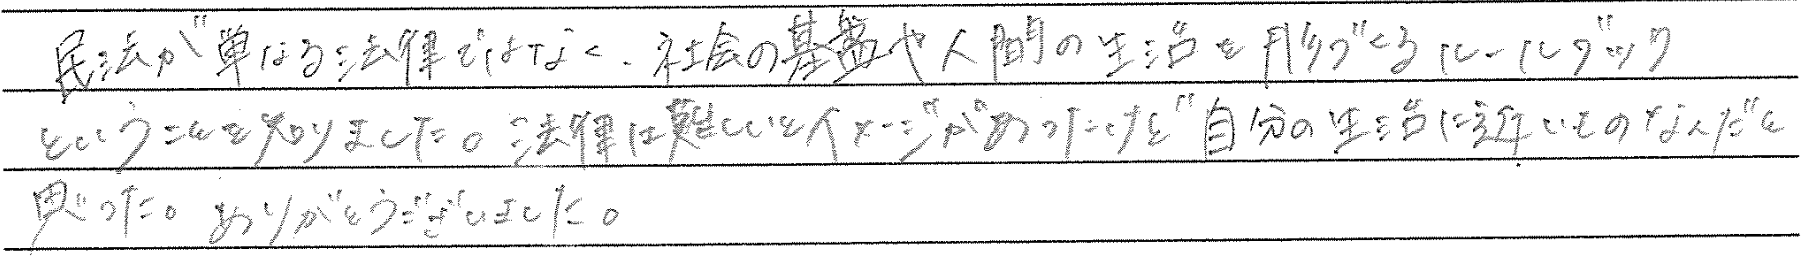 民法が単なる法律ではなく、社会の基盤や人間の生活を形づくるルールブック
ということを知りました。法律は難しいとイメージがあったけど自分の生活に近いものなんだと
思った。ありがとうございました。